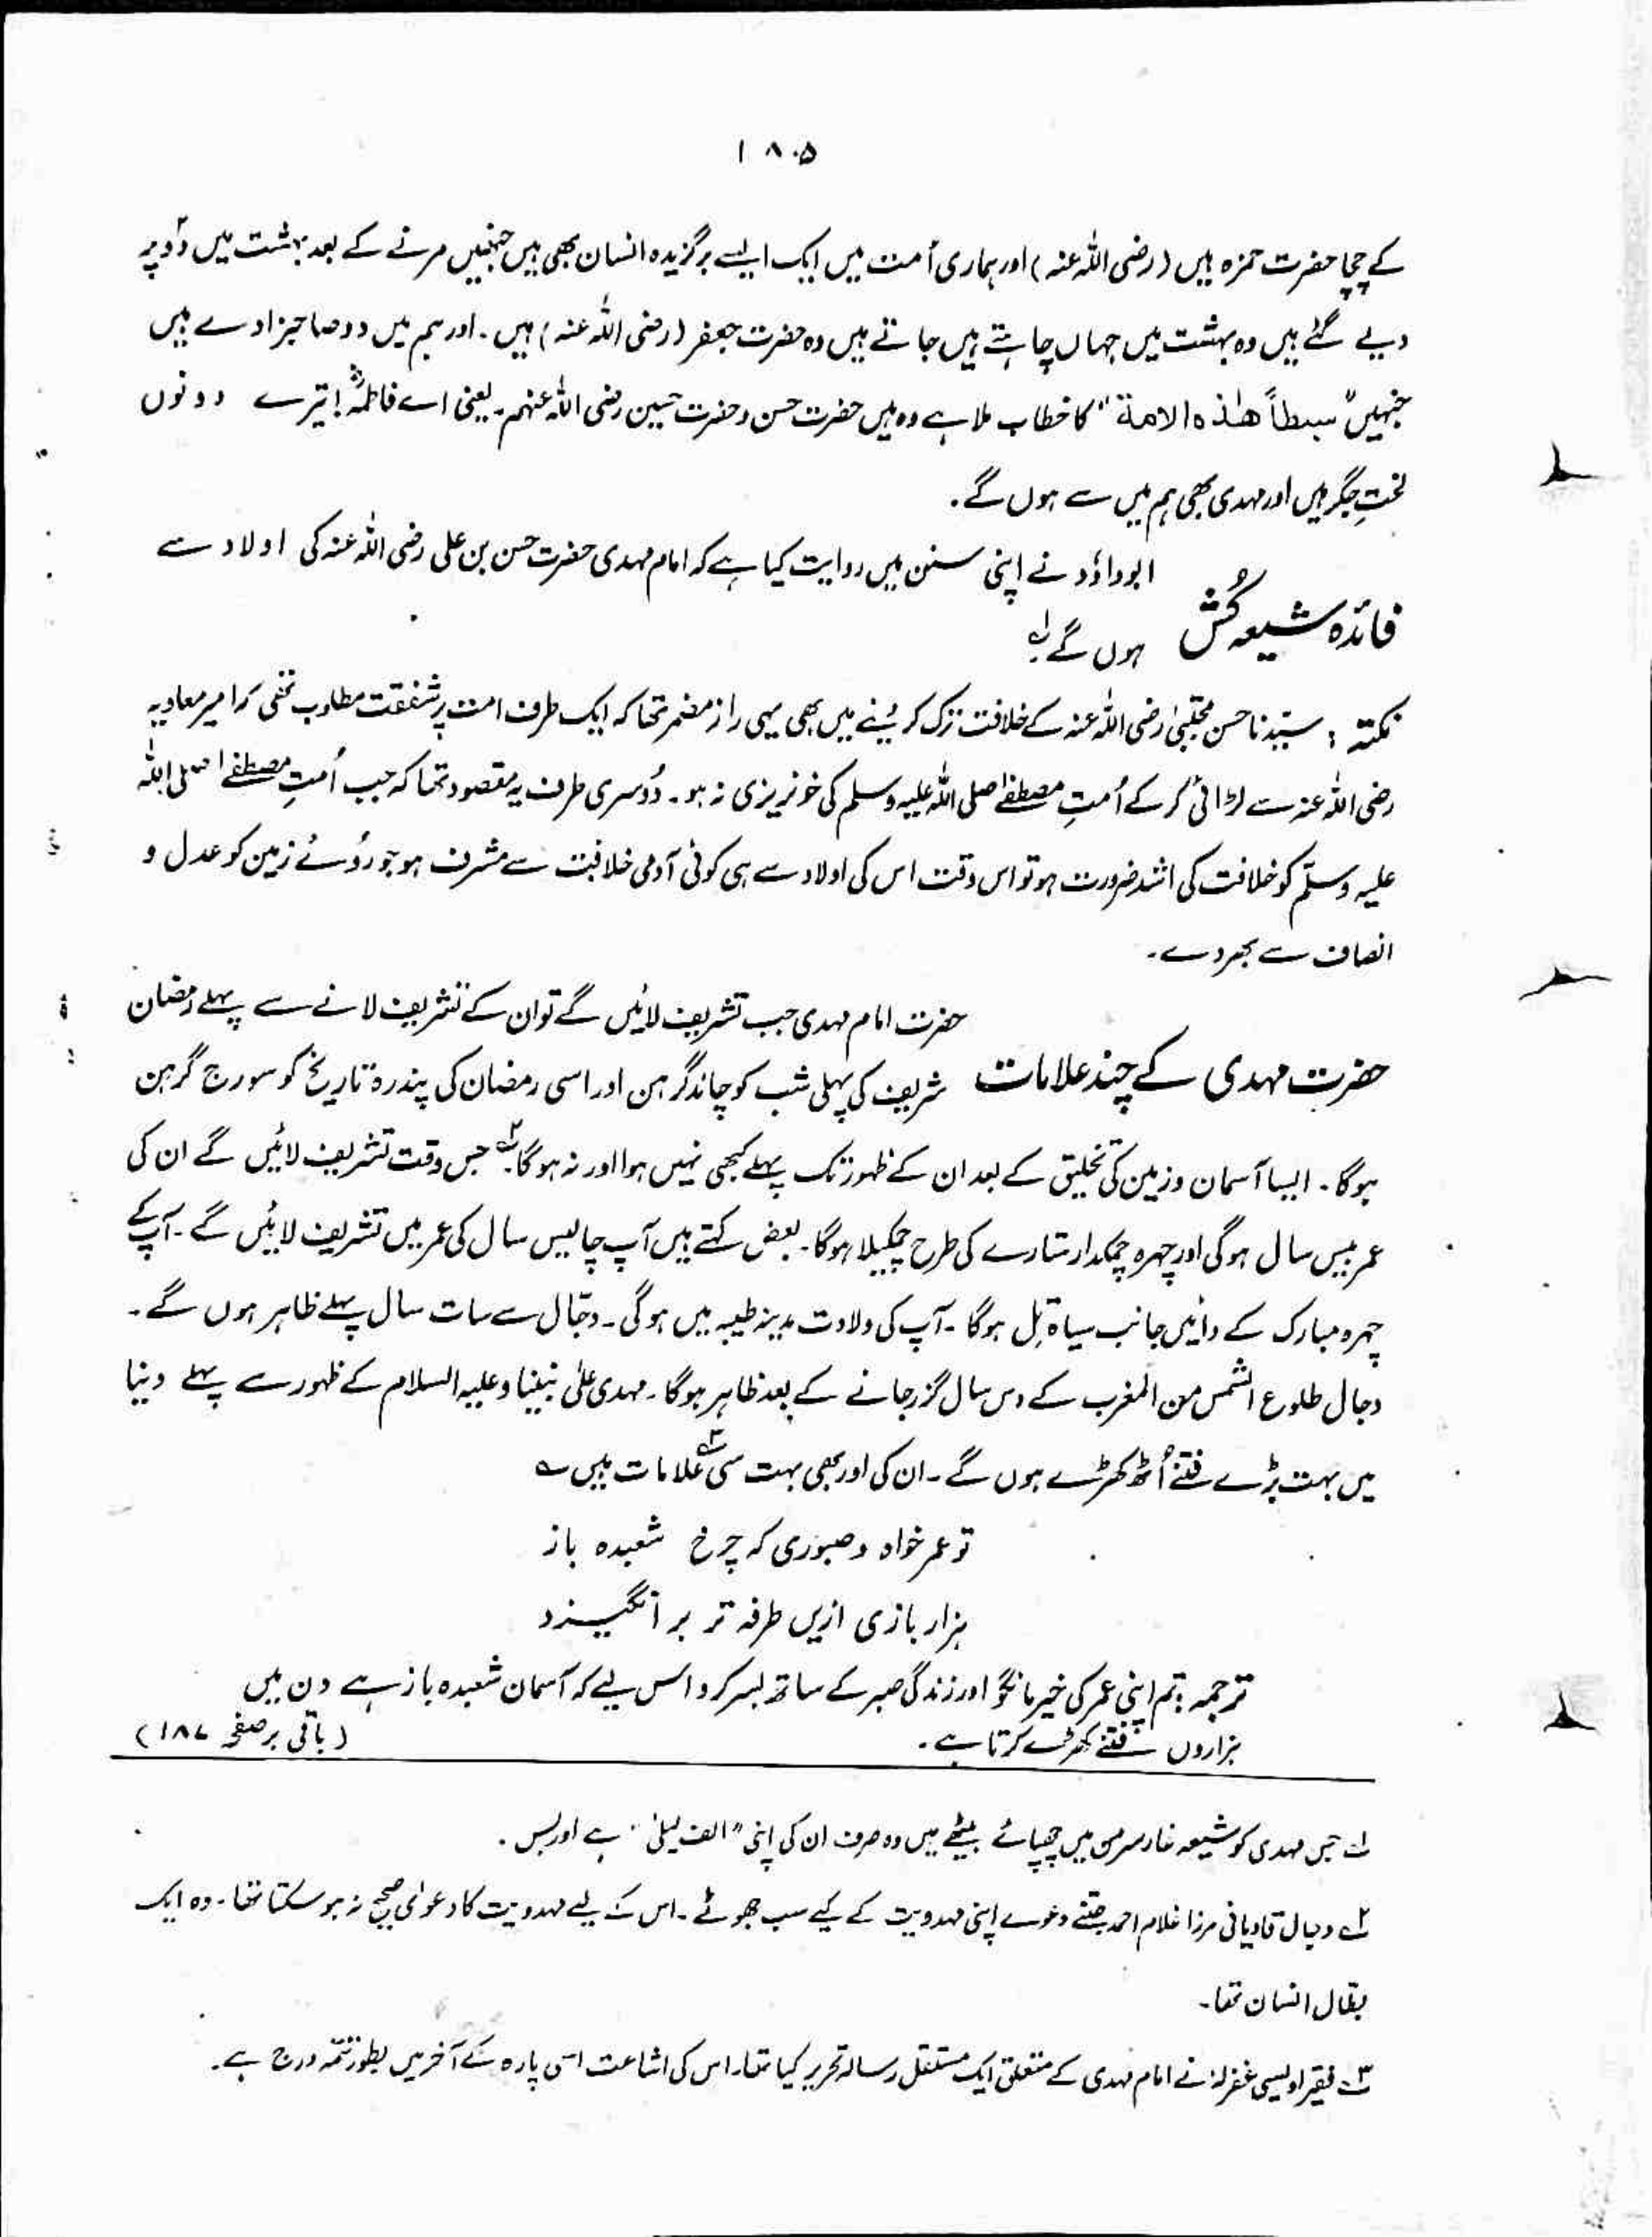 ۱۸۰۵
کے چچا حضرت حمزہ ہیں (رضی اللہ عنہ) اور ہماری اُمت میں ایک ایسے برگزیدہ انسان بھی ہیں جنہیں مرنے کے بعد بہشت میں دو پر
دیے گئے ہیں وہ بہشت میں جہاں چاہتے ہیں جاتے ہیں وہ حضرت جعفر (رضی اللہ عنہ) ہیں۔ اور ہم میں دو صاحبزادے ہیں
جنہیں "سبطاً ھٰذہ الامۃ" کا خطاب ملا ہے وہ ہیں حضرت حسن و حضرت حسین رضی اللہ عنہم۔ یعنی اے فاطمہؓ! تیرے دونوں
لختِ جگر ہیں اور مہدی بھی ہم میں سے ہوں گے۔
ابوداؤد نے اپنی سنن میں روایت کیا ہے کہ امام مہدی حضرت حسن بن علی رضی اللہ عنہ کی اولاد سے
فائدہ شیعہ کُش ہوں گے۱؎
نکتہ : سیّدنا حسن مجتبیٰ رضی اللہ عنہ کے خلافت ترک کر دینے میں بھی یہی راز مضمر تھا کہ ایک طرف امت پر شفقت مطلوب تھی کہ امیر معاویہ
رضی اللہ عنہ سے لڑائی کر کے اُمتِ مصطفےٰ صلی اللہ علیہ وسلم کی خونریزی نہ ہو۔ دُوسری طرف یہ مقصود تھا کہ جب اُمتِ مصطفےٰ صلی اللہ
علیہ وسلّم کو خلافت کی اشد ضرورت ہو تو اس وقت اس کی اولاد سے ہی کوئی آدمی خلافت سے مشرف ہو جو رُوئے زمین کو عدل و
انصاف سے بھر دے۔
حضرت امام مہدی جب تشریف لائیں گے تو ان کے تشریف لانے سے پہلے رمضان
حضرت مہدی کے چند علامات شریف کی پہلی شب کو چاند گرہن اور اسی رمضان کی پندرہ تاریخ کو سورج گرہن
ہوگا۔ ایسا آسمان و زمین کی تخلیق کے بعد ان کے ظہور تک پہلے کبھی نہیں ہوا اور نہ ہوگا۔۲؎ جس وقت تشریف لائیں گے ان کی
عمر بیس سال ہوگی اور چہرہ چمکدار ستارے کی طرح چمکیلا ہوگا۔ بعض کہتے ہیں آپ چالیس سال کی عمر میں تشریف لائیں گے۔ آپ کے
چہرہ مبارک کے دائیں جانب سیاہ تِل ہوگا۔ آپ کی ولادت مدینہ طیبہ میں ہوگی۔ دجّال سے سات سال پہلے ظاہر ہوں گے۔
دجال طلوع الشمس من المغرب کے دس سال گزر جانے کے بعد ظاہر ہوگا۔ مہدی علیٰ نبینا و علیہ السلام کے ظہور سے پہلے دنیا
میں بہت بڑے فتنے اُٹھ کھڑے ہوں گے۔ ان کی اور بھی بہت سی۳؎ علامات ہیں ؎
تو عمر خواہ و صبوری کہ چرخ شعبدہ باز
ہزار بازی ازیں طرفہ تر بر انگیزد
ترجمہ : تم اپنی عمر کی خیر مانگو اور زندگی صبر کے ساتھ بسر کرو اس لیے کہ آسمان شعبدہ باز ہے دن میں
ہزاروں فتنے کھڑے کرتا ہے۔ (باقی بر صفحہ ۱۸۷)
۱؎ جس مہدی کو شیعہ غار سرمن میں چھپائے بیٹھے ہیں وہ صرف ان کی اپنی "الف لیلیٰ" ہے اور بس۔
۲؎ دجال قادیانی مرزا غلام احمد جتنے دعوے اپنی مہدویت کے کیے سب جھوٹے۔ اس کے لیے مہدویت کا دعوٰی صحیح نہ ہو سکتا تھا۔ وہ ایک
بقال انسان تھا۔
۳؎ فقیر اویسی غفرلہٗ نے امام مہدی کے متعلق ایک مستقل رسالہ تحریر کیا تھا۔ اس کی اشاعت اسی پارہ کے آخر میں بطور تتمّہ درج ہے۔